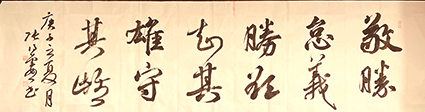 敬勝
怠義
勝欲
知其
雄守
其雌
庚子夏月